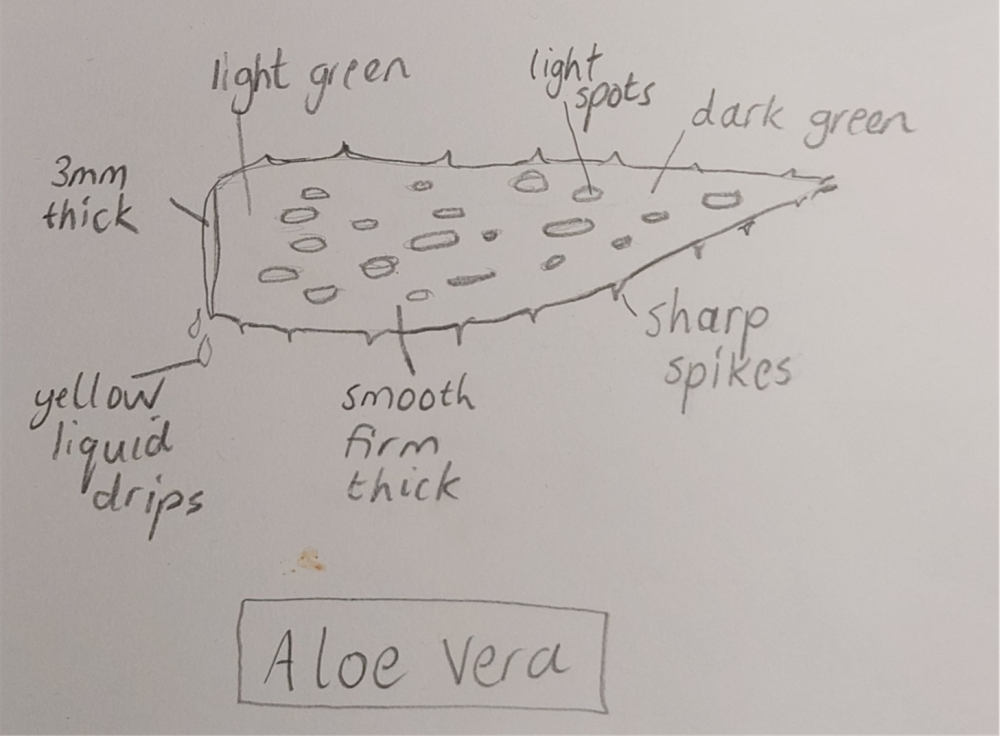 light green
light
spots
dark green
3mm
thick
sharp
spikes
yellow
liquid
drips
smooth
firm
thick
Aloe Vera